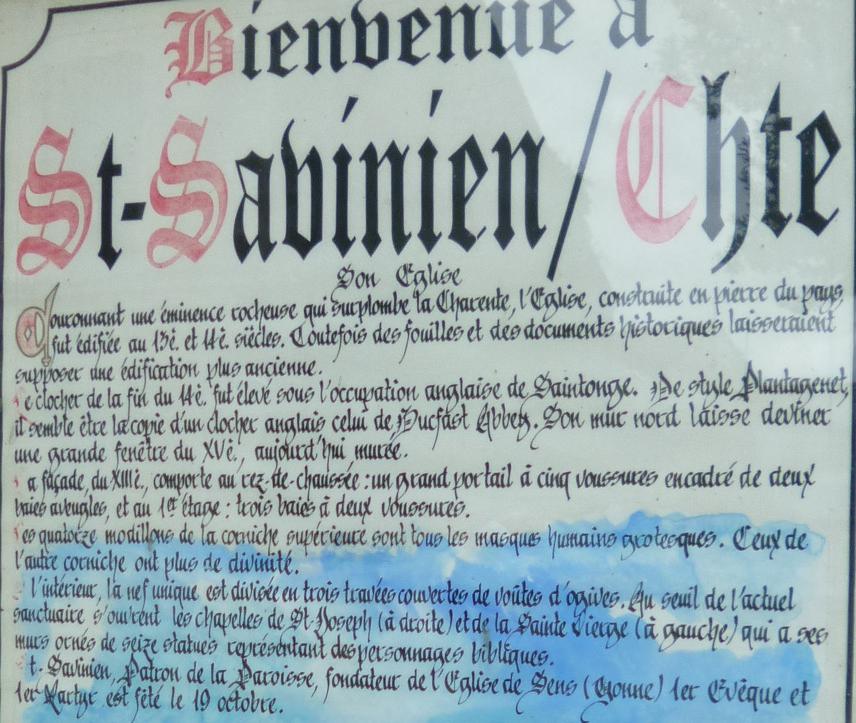 Bienvenue à
St-Savinien/Chte
Son Eglise
Couronnant une éminence rocheuse qui surplombe la Charente, l'Eglise, construite en pierre du pays,
fut édifiée au 13è. et 14è. siècles. Toutefois des fouilles et des documents historiques laisseraient
supposer une édification plus ancienne.
e clocher de la fin du 14è. fut élevé sous l'occupation anglaise de Saintonge. De style Plantagenet,
il semble être la copie d'un clocher anglais celui de Bucfast Abbey. Son mur nord laisse deviner
une grande fenêtre du XVè., aujourd'hui murée.
a façade, du XIIIè., comporte au rez-de-chaussée : un grand portail à cinq voussures encadré de deux
baies aveugles, et au 1er étage : trois baies à deux voussures.
es quatorze modillons de la corniche supérieure sont tous les masques humains grotesques. Ceux de
l'autre corniche ont plus de divinité.
l'intérieur, la nef unique est divisée en trois travées couvertes de voûtes d'ogives. Au seuil de l'actuel
sanctuaire s'ouvrent les chapelles de St-Joseph (à droite) et de la Sainte Vierge (à gauche) qui a ses
murs ornés de seize statues représentant des personnages bibliques.
t-Savinien, Patron de la Paroisse, fondateur de l'Eglise de Sens (Yonne) 1er Evêque et
1er Martyr est fêté le 19 octobre.